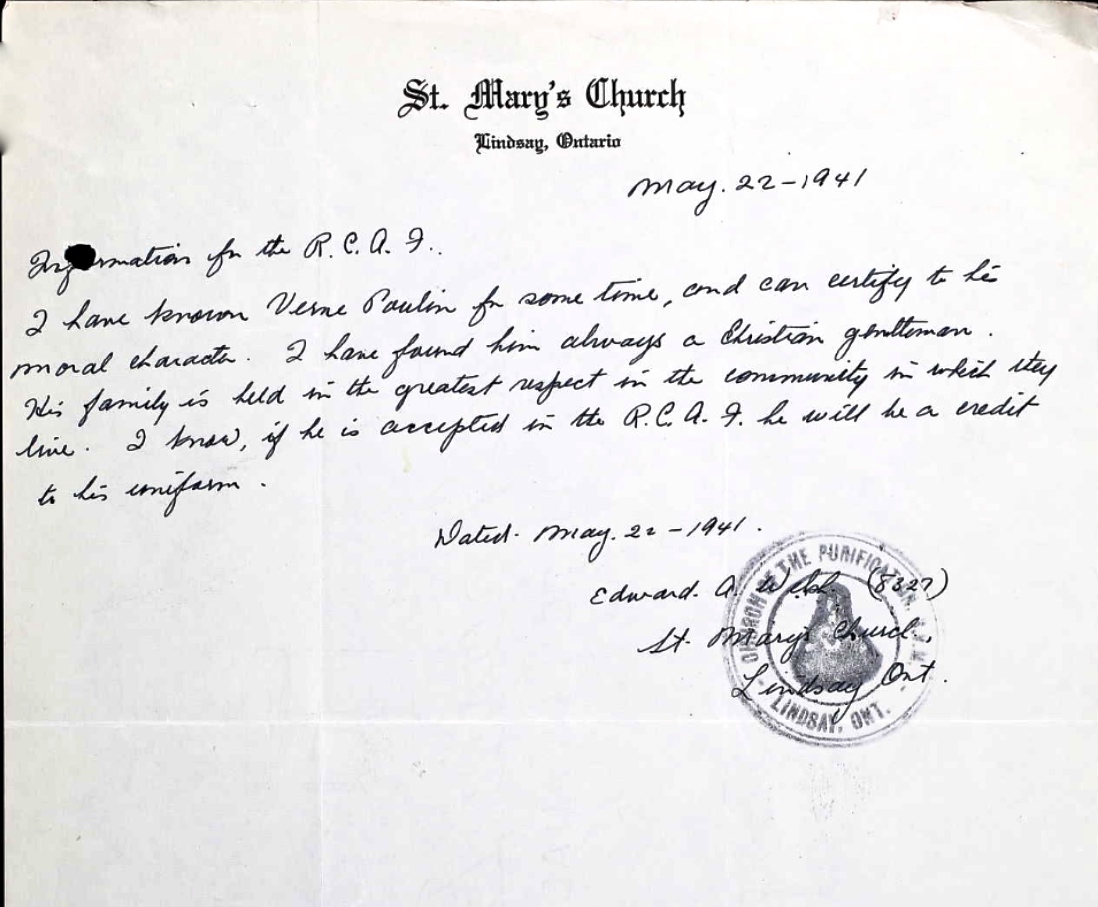 St. Mary's Church
Lindsay, Ontario
May. 22-1941
Information for the R.C.A.F..
I have known Verne Poulin for some time, and can certify to his
moral character. I have found him always a Christian gentleman.
His family is held in the greatest respect in the community in which they
live. I know, if he is accepted in the R.C.A.F. he will be a credit
to his uniform.
Dated. May. 22-1941.
Edward. A. (8327)
St. Mary's Church,
Lindsay Ont.
CHURCH OF THE PURIFICATION
LINDSAY, ONT.